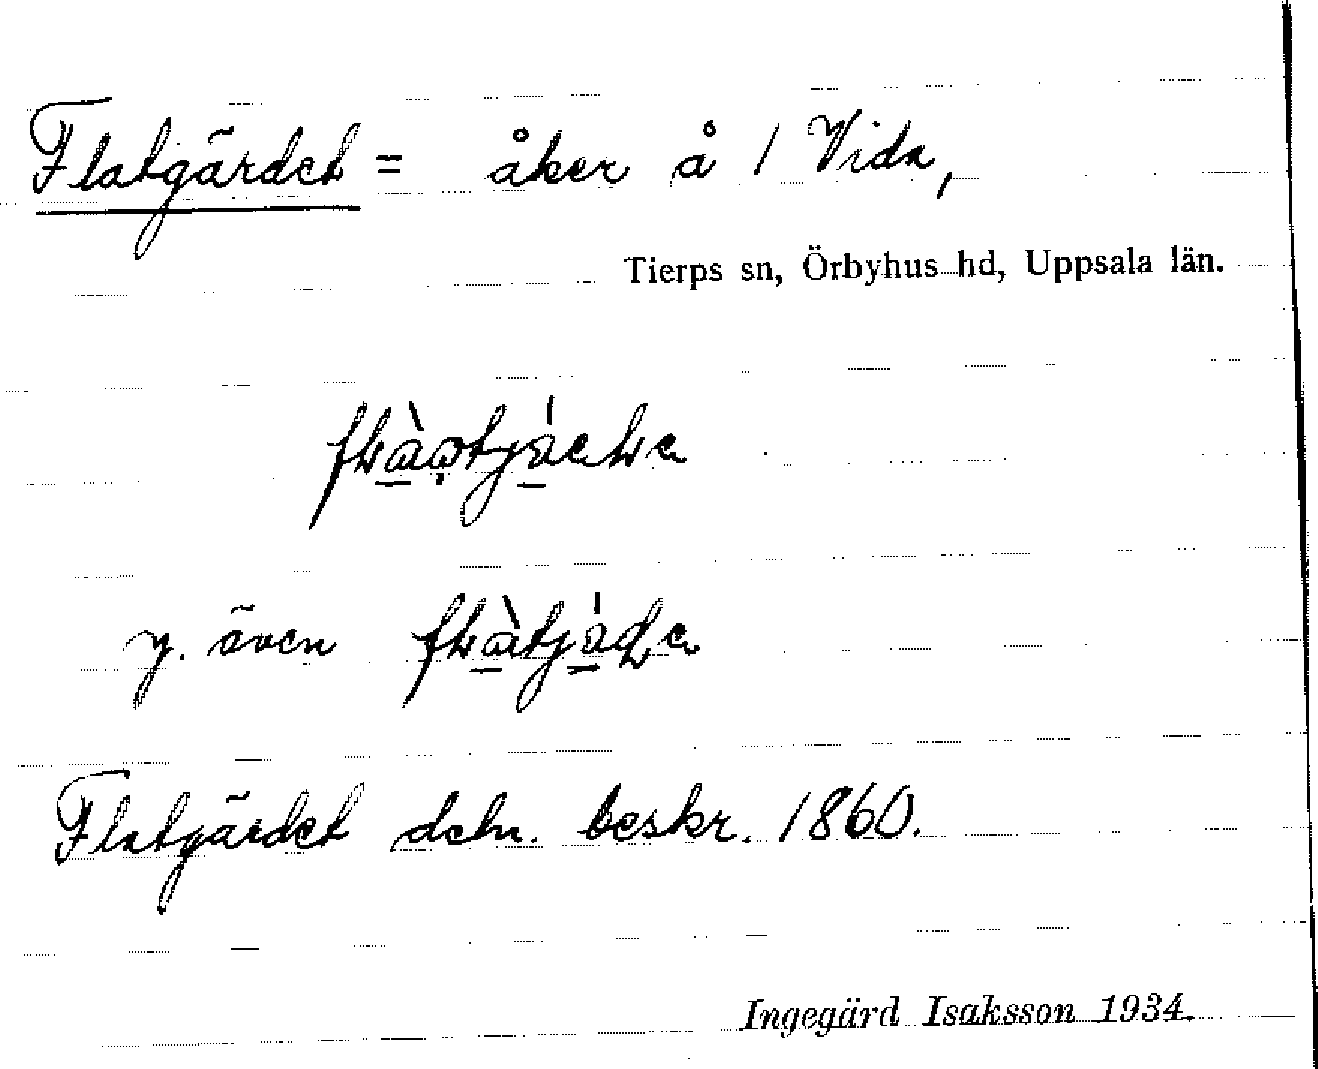 Flatgärdet = åker å 1 Vida,
Tierps sn, Örbyhus hd, Uppsala län.
y. även
Flatgärdet deln. beskr. 1860.
Ingegärd Isaksson 1934.